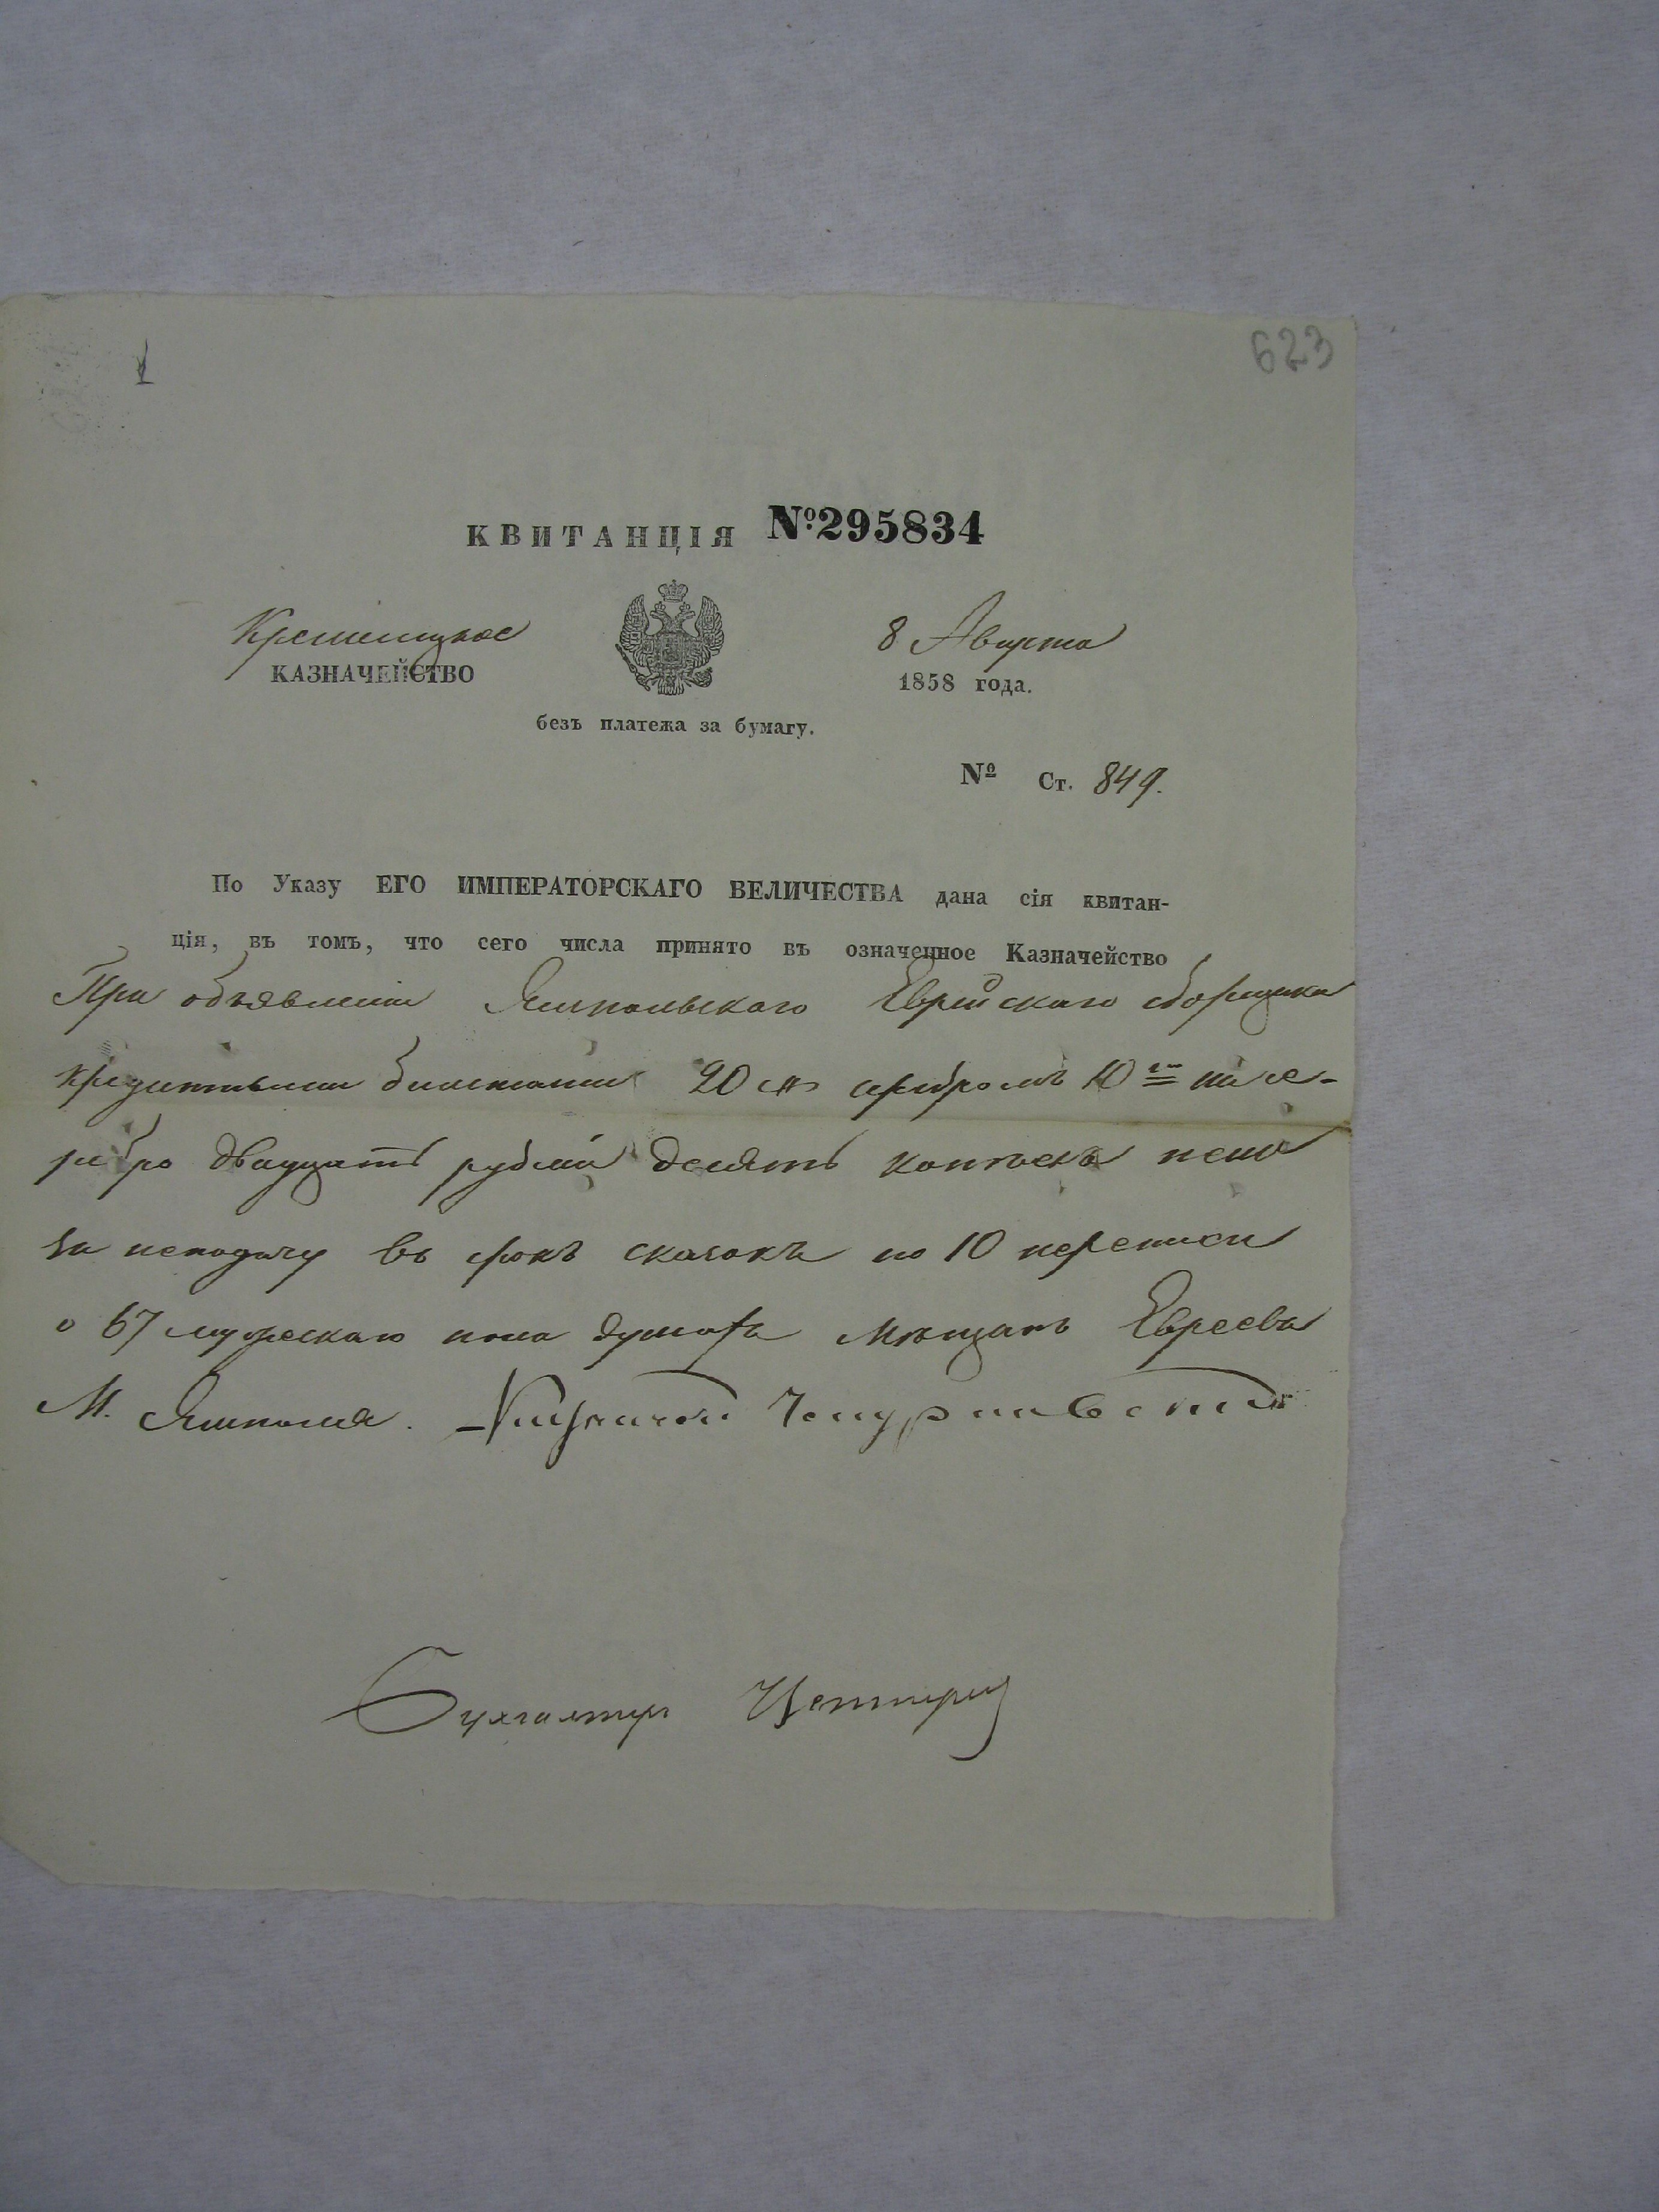 623
КВИТАНЦІЯ №295834
Кременецкое
8 Августа
КАЗНАЧЕЙСТВО
1858 года.
безъ платежа за бумагу.
№ Ст. 849.
По Указу ЕГО ИМПЕРАТОРСКАГО ВЕЛИЧЕСТВА дана сія квитан-
ція, въ томъ, что сего числа принято въ означенное Казначейство
При объявленіи Ямпольскаго Еврейскаго сборщика
кредитными билетами 20 серебромъ 10 на се-
ребро двадцать рублей десять копѣекъ пени
за неподачу въ срокъ сказокъ по 10 переписи
о 67 мужескаго пола душахъ Мѣщанъ Евреевъ
М. Ямполя.
Бухгалтеръ